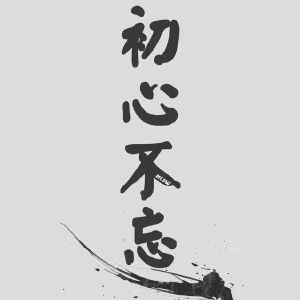 初心不忘